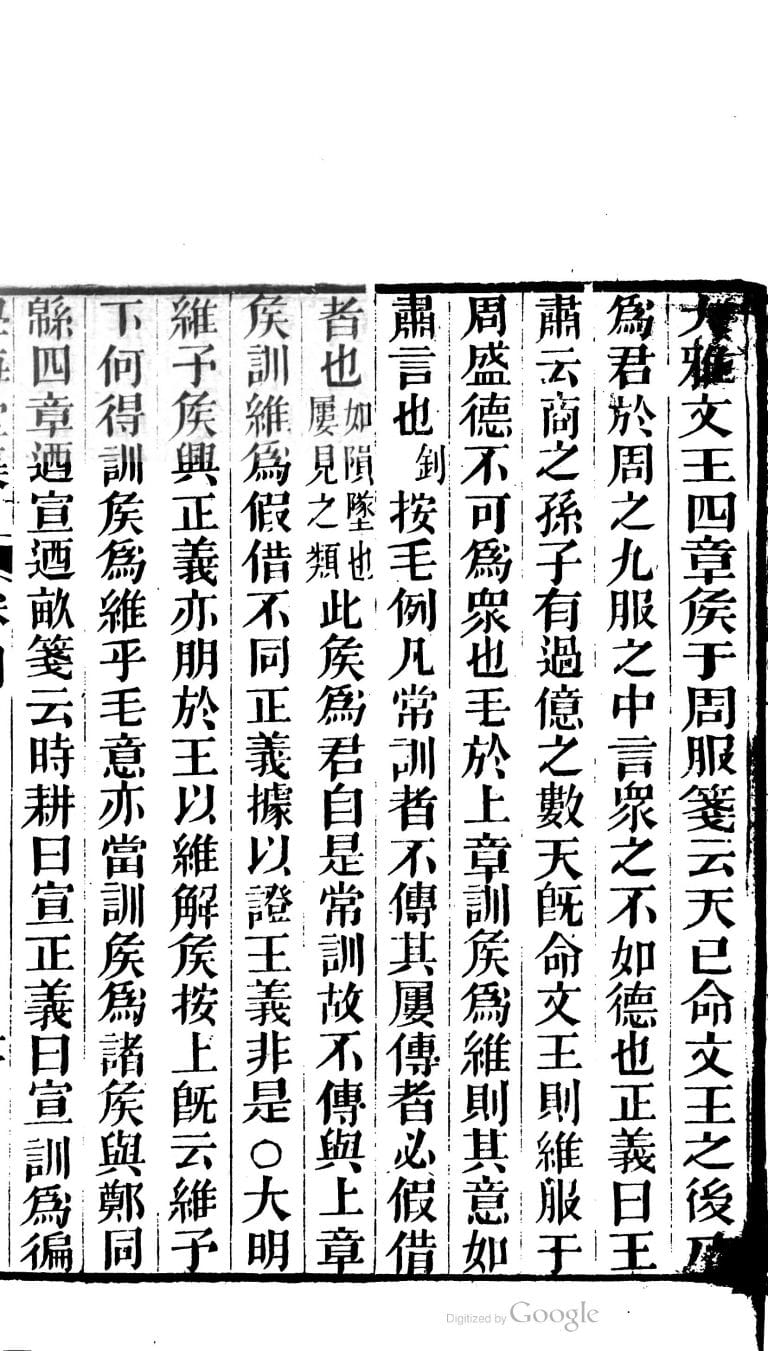 大雅文王四章矦于周服箋云天已命文王之後乃
爲君於周之九服之中言衆之不如德也正義曰王
肅云商之孫子有過億之數天旣命文王則維服于
周盛德不可爲衆也毛於上章訓矦爲維則其意如
肅言也釗按毛例凡常訓者不傳其屢傳者必假借
者也如隕墜也屢見之類此矦爲君自是常訓故不傳與上章
矦訓維爲假借不同正義據以證王義非是○大明
維予矦興正義亦朋於王以維解矦按上旣云維予
下何得訓矦爲維乎毛意亦當訓矦爲諸矦與鄭同
緜四章迺宣迺畝箋云時耕曰宣正義曰宣訓爲徧
Digitized by Google